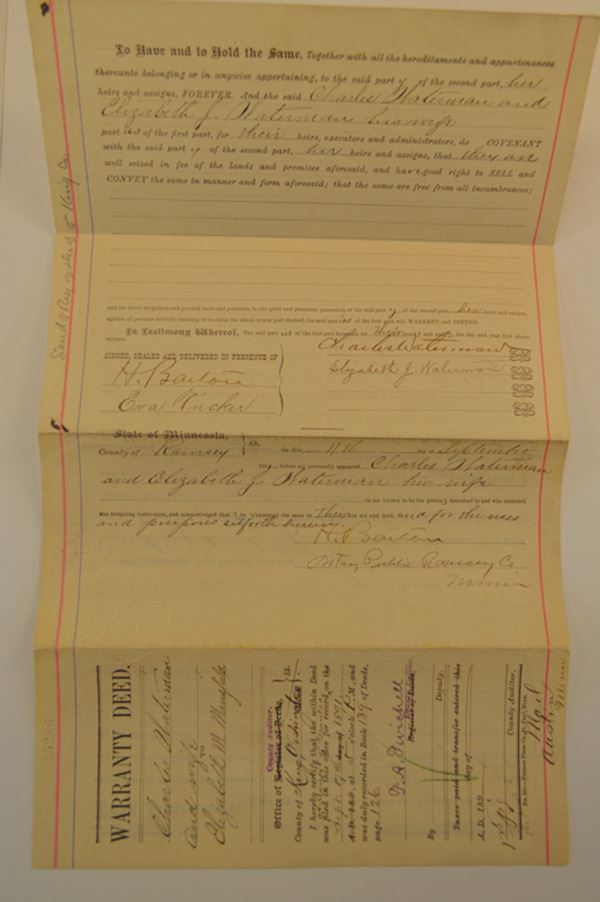 To Have and to Hold the Same, Together with all the hereditaments and appurtenances
thereunto belonging or in anywise appertaining, to the said party of the second part, her
heirs and assigns, FOREVER. And the said Charles Waterman and
Elizabeth J. Waterman his wife
part ies of the first part, for their heirs, executors and administrators, do COVENANT
with the said party of the second part, her heirs and assigns, that they are
well seized in fee of the lands and premises aforesaid, and have good right to SELL and
CONVEY the same in manner and form aforesaid; that the same are free from all incumbrances;
Send to Reg of deeds of King Co
and the above bargained and granted lands and premises, in the quiet and peaceable possession of the said party of the second part, her heirs and assigns,
against all persons lawfully claiming or to claim the whole or any part thereof, the said part ies of the first part will WARRANT and DEFEND.
In Testimony Whereof, The said part ies of the first part have hereunto set their hands and seals the day and year first above
written.
Charles Waterman
SIGNED, SEALED AND DELIVERED IN PRESENCE OF
H. Barton
Elizabeth J. Waterman
Eva
State of Minnesota,
County of Ramsey ss.
On this 11th day of September
189 , before me personally appeared Charles Waterman
and Elizabeth J. Waterman his wife
to me known to be the persons described in and who executed
the foregoing instrument, and acknowledged that they executed the same as Their free act and deed, and for the uses
and purposes setforth herein.
H. Barton
Notary Public Ramsey Co
Minn
WARRANTY DEED.
Charles Waterman
and wife
TO
Elizabeth M.
County Auditor.
Office of Register of Deeds,
County of King Washington ss.
I hereby certify that the within Deed
was filed in this office for record on the
17th day of Sept. 1891
A. D. 189 , at o'clock P. M. and
was duly recorded in Book 139 of Deeds,
page 126
D. A. Twichell
Register of Deeds.
By Deputy.
Taxes paid and transfer entered this
day of
A. D. 189
County Auditor.
Mail
Austin
Minn